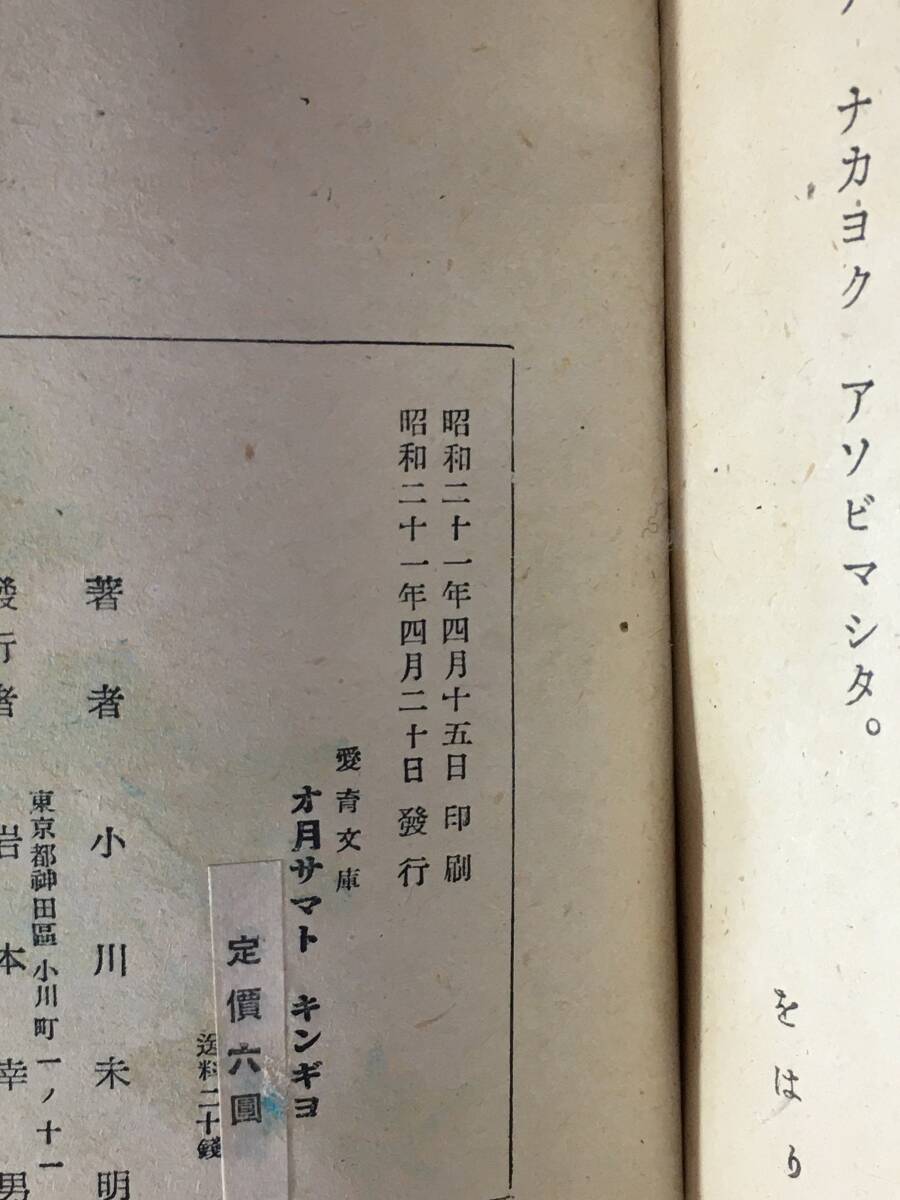 ナカヨク アソビマシタ。
をはり
昭和二十一年四月十五日印刷
昭和二十一年四月二十日發行
愛育文庫
オ月サマト キンギヨ
定價六圓
送料二十錢
著者 小川未明
東京都神田區小川町一ノ十一
發行者 岩本幸男